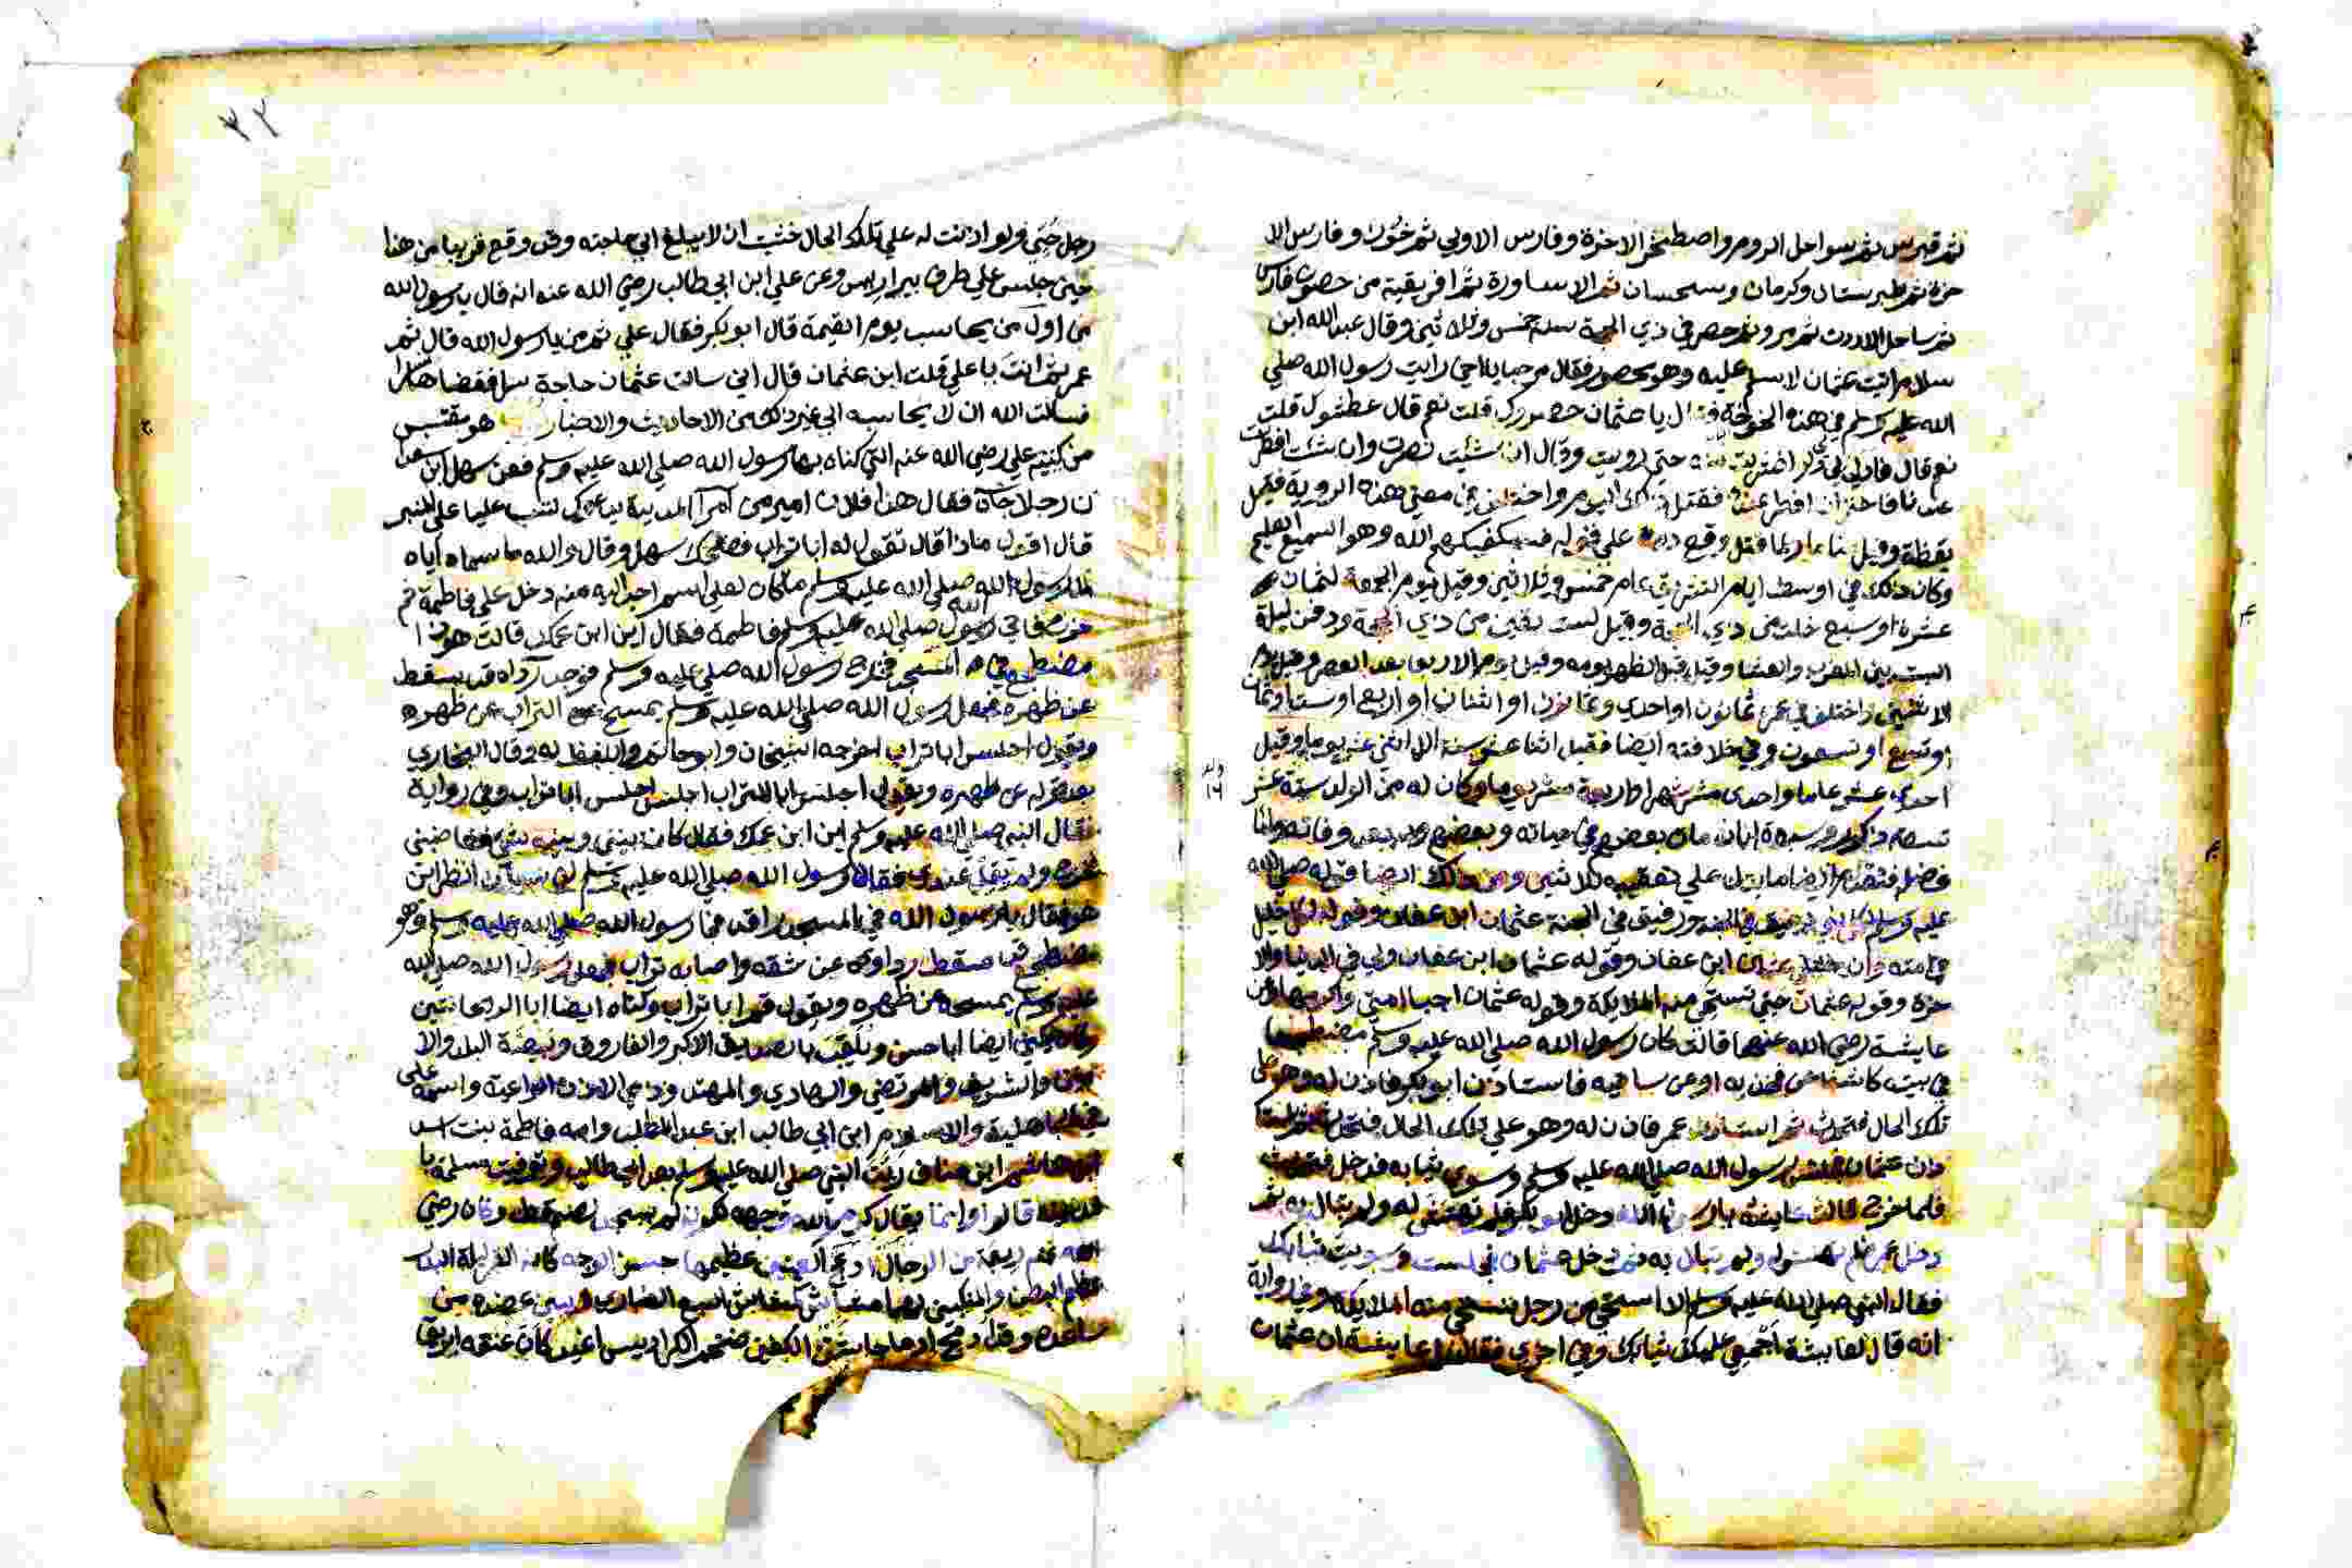 ثم قبرس ثم سواحل الروم واصطخر الاخرة وفارس الاولي ثم خوز وفارس الا
خرة ثم طبرستان وكرمان وسجستان ثم الاساورة ثم افريقية من حصون فارس
ثم ساحل الاردن ثم مرو ثم حصر في ذي الحجة سنة خمس وثلاثين وقال عبدالله ابن
سلام اتيت عثمان لاسلم عليه وهو محصور فقال مرحبا يااخي رايت رسول الله صلي
الله عليه وسلم في هذه الخوخة فقال يا عثمان حصروك قلت نعم قال عطشوك قلت
نعم قال فادلي لي فشربت منه حتي رويت وقال ان شئت نصرت وان شئت افطرت
عندنا فاخترت ان افطر عنده فقتل ذلك اليوم واختلف في معني هذه الروية فقيل
يقظة وقيل مناما ولما قتل وقع دمه علي قوله فسيكفيكهم الله وهو السميع العليم
وكان ذلك في اوسط ايام التشريق عام خمس وثلاثين وقيل يوم الجمعة لثمان
عشرة او سبع خلت من ذي الحجة وقيل لست بقين من ذي الحجة ودفن ليلة
السبت بين المغرب والعشا وقيل قبل الظهر يومه وقيل يوم الاربعا بعد العصر وقيل يوم
الاثنين واختلف في عمره ثمانون او احدي وثمانون او اثنان او اربع او ست او ثمان
او تسع او تسعون وفي خلافته ايضا فقيل اثنا عشر سنة الا اثني عشر يوما وقيل
احدي عشر عاما واحدي عشر شهرا واربعة عشر يوما وكان له من الولد ستة عشر
تسعة ذكور وسبعة اناث مات بعضهم في حياته وبعضهم بعد وفاته واما
عليه وسلم لكل نبي رفيق في الجنة ورفيقي في الجنة عثمان ابن عفان وقوله لكل خليل
في امته وان خليلي عثمان ابن عفان وقوله عثمان ابن عفان وليي في الدنيا والا
خرة وقوله عثمان حيي تستحي منه الملايكة وقوله عثمان احيا امتي واكرمها وعن
عايشة رضي الله عنها قالت كان رسول الله صلي الله عليه وسلم مضطجعا
في بيت كاشفا عن فخذيه او عن ساقيه فاستاذن ابو بكر فاذن له وهو علي
تلك الحال فتحدث ثم استاذن عمر فاذن له وهو علي تلك الحال فتحدث ثم استا
ذن عثمان فجلس رسول الله صلي الله عليه وسلم وسوي ثيابه فدخل فتحدث
فلما خرج قالت عايشة يارسول الله دخل ابو بكر فلم تهتش له ولم تبال به ثم
دخل عمر فلم تهتش له ولم تبال به ثم دخل عثمان فجلست وسويت ثيابك
فقال النبي صلي الله عليه وسلم الا استحي من رجل تستحي منه الملايكة وفي رواية
انه قال لعايشة اجمعي عليك ثيابك وفي اخري فقال يا عايشة ان عثمان
رجل حيي ولو اذنت له علي تلك الحال خشيت ان لا يبلغ الي حاجته وقد وقع قريبا من هذا
حين جلس علي طرف بير اريس وعن علي ابن ابي طالب رضي الله عنه انه قال يا رسول الله
من اول من يحاسب يوم القيمة قال ابو بكر فقال علي ثم من يا رسول الله قال ثم
عمر ثم انت يا علي قلت ابن عثمان قال اني سالت عثمان حاجة سرا فقضاها سرا
فسالت الله ان لا يحاسبه الي غير ذلك من الاحاديث والاخبار هو مقتبس
من كنيته علي رضي الله عنه التي كناه بها رسول الله صلي الله عليه وسلم فعن سهل ابن سعد
ان رجلا جاه فقال هذا فلان امير من امرآ المدينة يدعوك لتسب عليا علي المنبر
قال اقول ماذا قال تقول له ابا تراب فضحك سهل وقال والله ما سماه اياه
الا رسول الله صلي الله عليه وسلم ما كان لعلي اسم احب اليه منه دخل علي فاطمة ثم
خرج فاتي رسول الله صلي الله عليه وسلم فاطمة فقال اين ابن عمك قالت هو ذا
مضطجع في المسجد فخرج رسول الله صلي عليه وسلم فوجد رداه قد سقط
عن ظهره فجعل رسول الله صلي الله عليه وسلم يمسح التراب عن ظهره
ويقول اجلس ابا تراب اخرجه الشيخان وابو حاتم واللفظ له وقال البخاري
بعد قوله عن ظهره ويقول اجلس ابا التراب اجلس اجلس ابا تراب وفي رواية
فقال النبي صلي الله عليه وسلم اين ابن عمك فقال كان بيني وبينه شي فغاضبني
فخرج ولم يقل عندي فقال رسول الله صلي الله عليه وسلم لانسان انظر اين
هو فقال يا رسول الله في المسجد راقد فجا رسول الله صلي الله عليه وسلم وهو
مضطجع قد سقط رداوه عن شقه واصابه تراب فجعل رسول الله صلي الله
عليه وسلم يمسحه عن ظهره ويقول قم ابا تراب وكناه ايضا ابا الريحانتين
وكان يكني ايضا ابا حسن ويلقب بالصديق الاكبر والفاروق وبيضة البلد والا
مين والشريف والمرتضي والهادي والمهتد وذي الاذن الواعية واسمه علي
في الجاهلية والاسلام ابن ابي طالب ابن عبد المطلب وامه فاطمة بنت اسد
ابن هاشم ابن مناف ربت النبي صلي الله عليه وسلم بعد ابي طالب وتوفيت مسلمة با
لمدينة قالوا وانما يقال كرم الله وجهه لكونه لم يسجد لصنم قط وكان رضي
الله عنه ربعة من الرجال ادعج العينين عظيمها حسن الوجه كانه القمر ليلة البدر
عظيم البطن
ساعده وقد ادمج ادماجا شثن الكفين ضخم الكراديس اغيد كان عنقه ابريق
٣٢